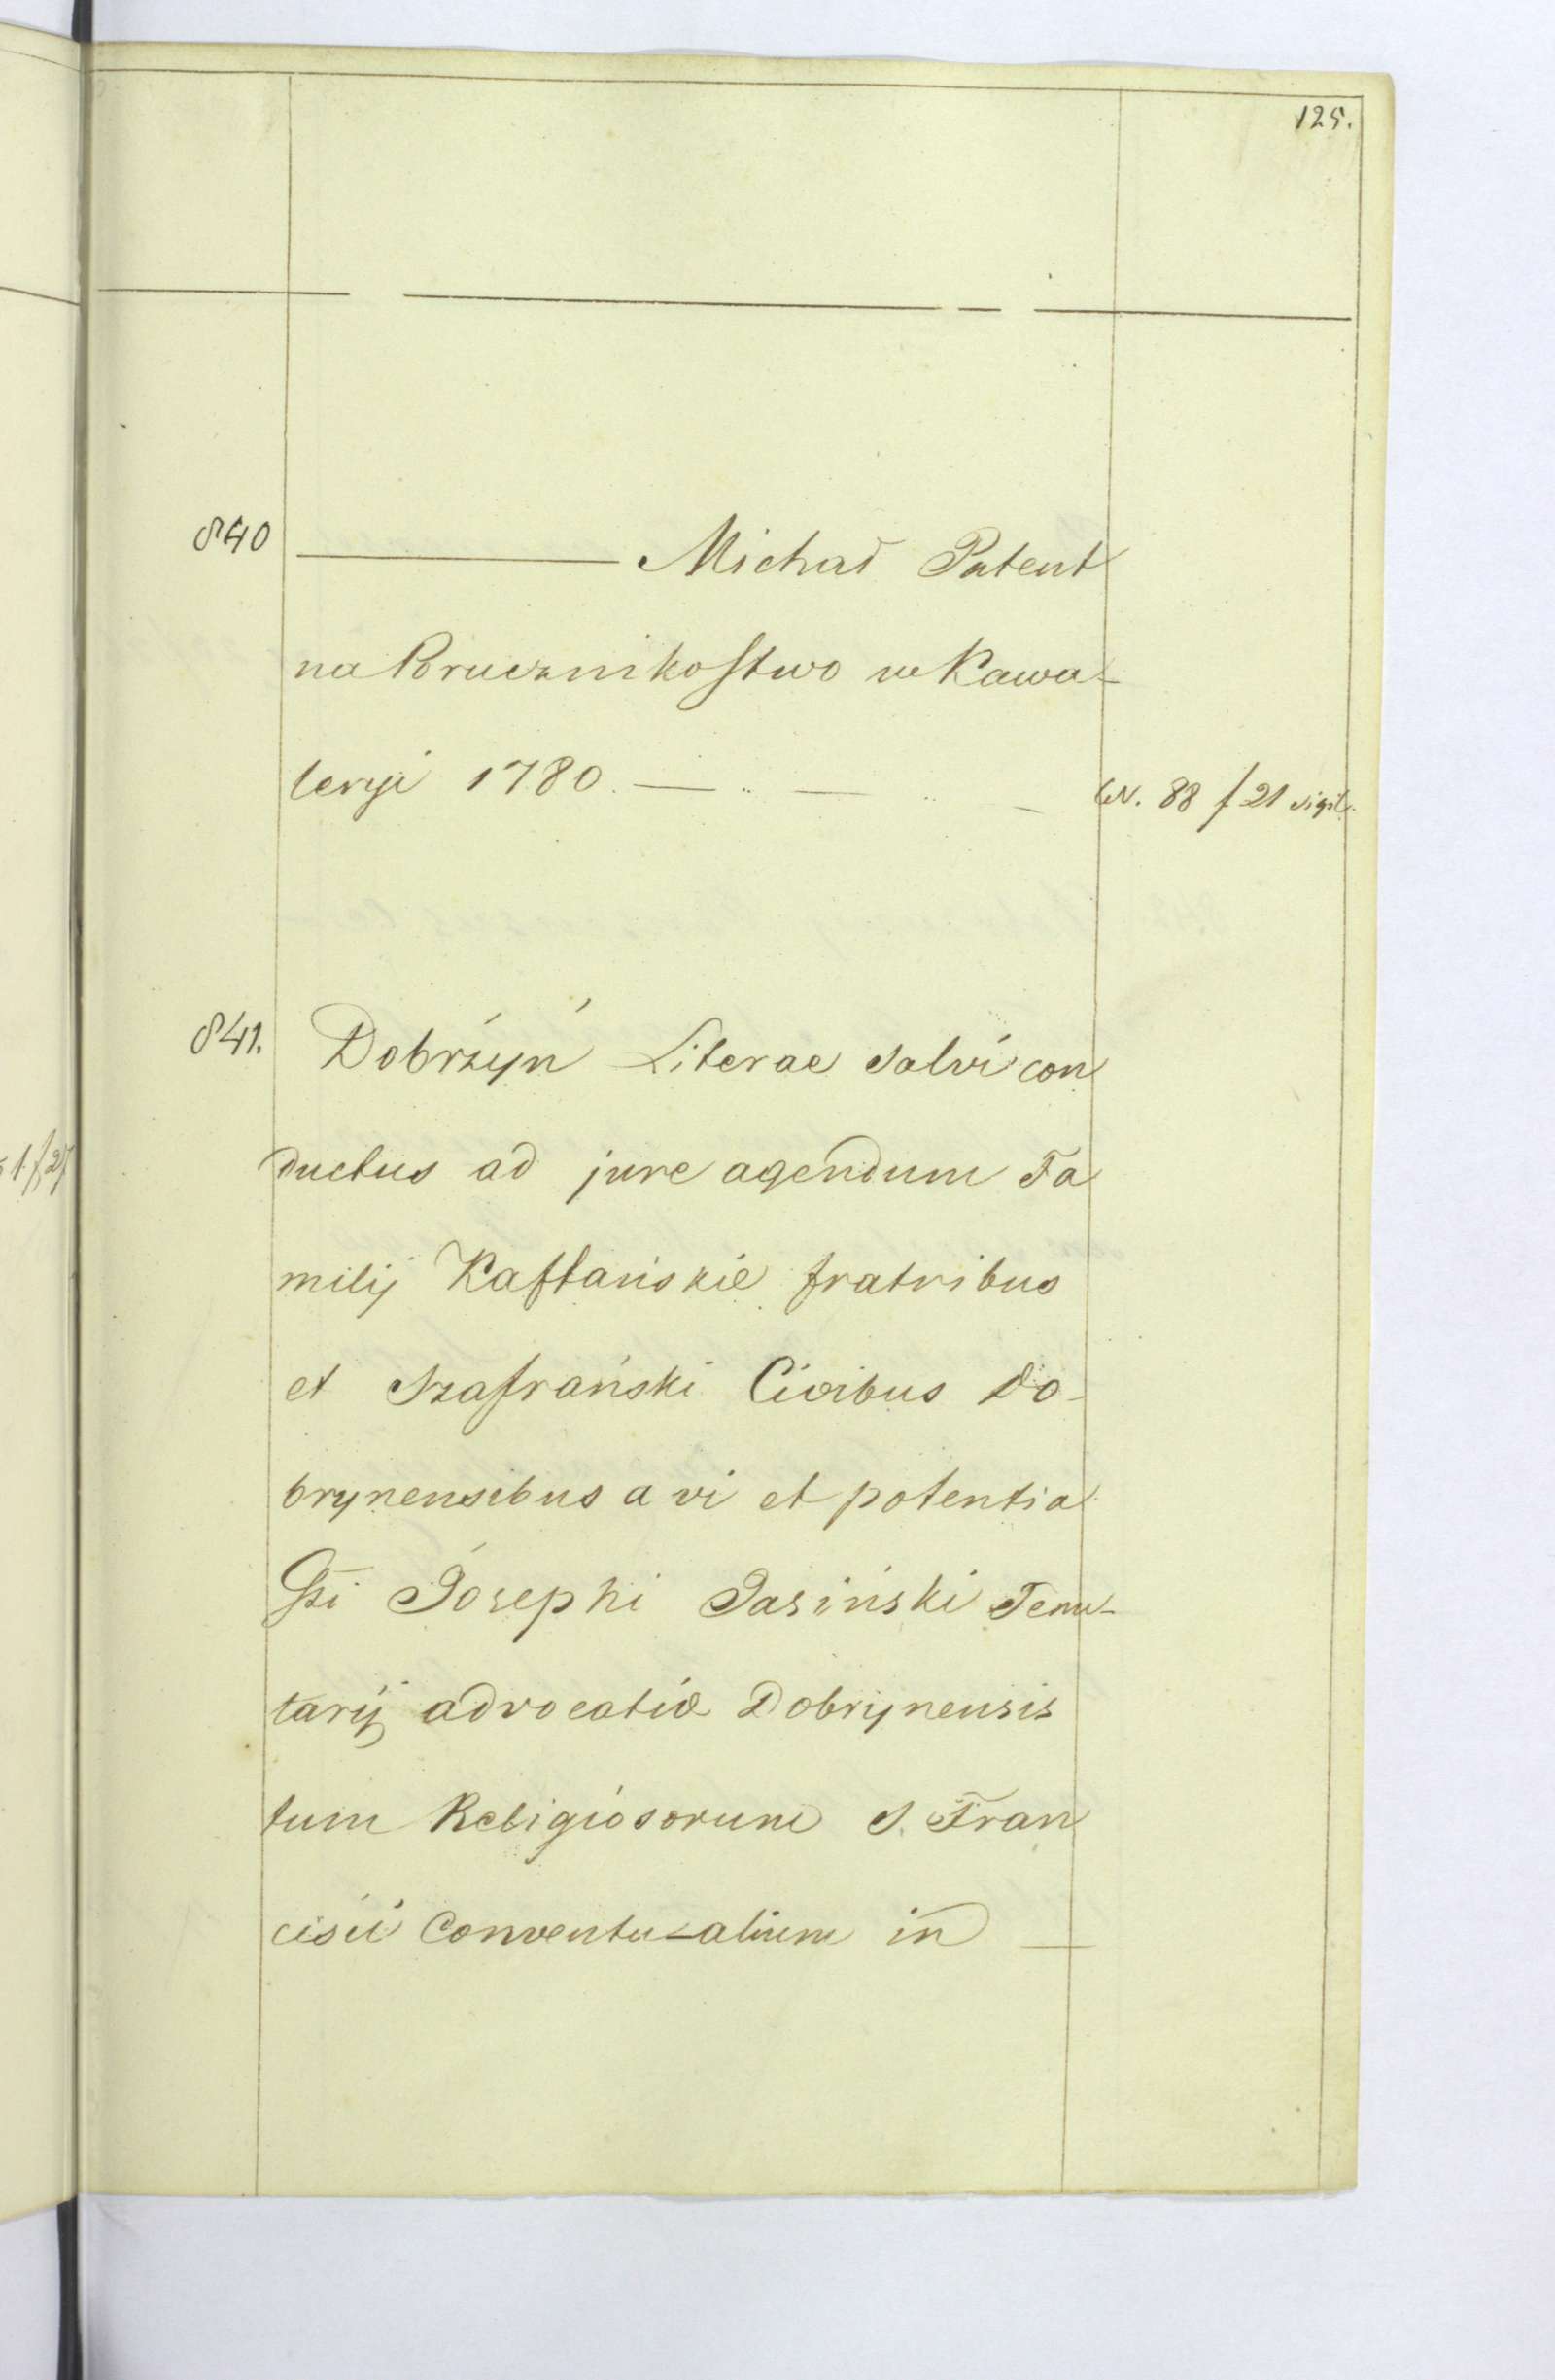 125.
840 ——— Michał Patent
na Porucznikostwo w Kawa-
leryi 1780. — .. — .. — W. 88 f 21 sigil.
841. Dobrzyń Literae salvi con
ductus ad jure agendum Fa
milij Kaftańskie fratribus
et Szafrański Civibus Do-
brynensibus a vi et potentia
Gsi Josephi Jasiński Tenu-
tarij advocatiæ Dobrynensis
tum Religiosorum S. Fran
cisii Conventu-alium in —